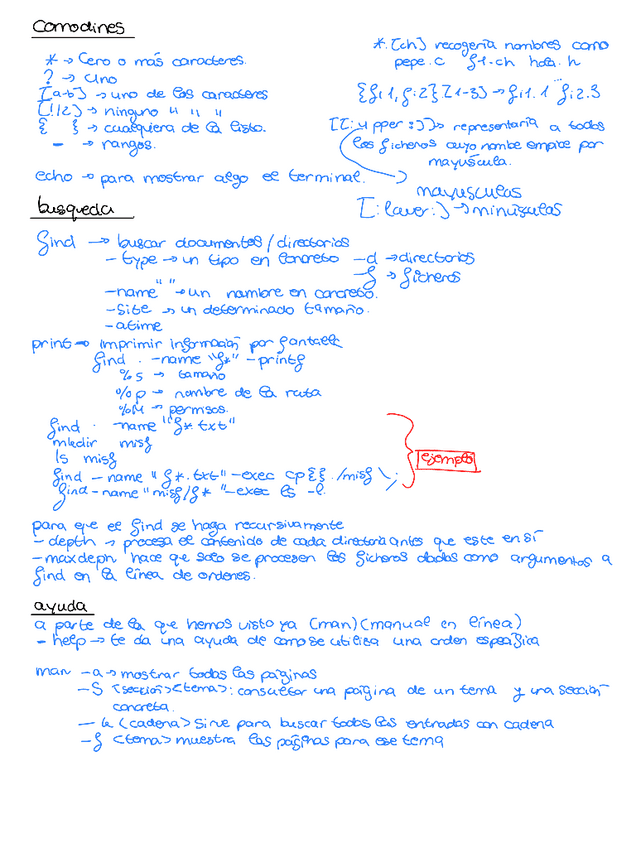 Comodines
* → Cero o más caracteres.
? → Uno
[a-b] → uno de los caracteres
[!12] → ninguno " " "
{ } → cualquiera de la lista.
- → rangos.
echo → para mostrar algo el terminal.
*.[ch] recogería nombres como
pepe.c f1.ch hola.h
{fi1,fi2}.[1-3] → fi1.1 ... fi2.3
[[:upper:]] → representaría a todos
los ficheros cuyo nombe empice por
mayúscula.
mayusculas
[:lawer:] → minúsculas
busqueda
find → buscar documentos/directorios
-type → un tipo en concreto -d → directorios
-f → ficheros
-name " " → un nombre en concreto.
-site → un determinado tamaño.
-atime
print → imprimir información por pantalla
find . -name "f*" -printf
%s → tamaño
%p → nombre de la ruta
%M → permisos.
find . -name "f*.txt"
mkdir misf
ls misf
find -name "f*.txt" -exec cp {} ./misf \;
find -name "misf/f*" -exec ls -l
ejemplo
para que el find se haga recursivamente
-depth → procesa el contenido de cada directorio antes que este en sí
-maxdeph hace que solo se procesen los ficheros dados como argumentos a
find en la línea de ordenes.
ayuda
a parte de la que hemos visto ya (man) (manual en línea)
-help → te da una ayuda de como se utiliza una orden específica
man -a → mostrar todas las páginas
-S <sección><tema>: consultar una página de un tema y una sección
concreta.
-k <cadena> sirve para buscar todas las entradas con cadena
-f <tema> muestra las páginas para ese tema